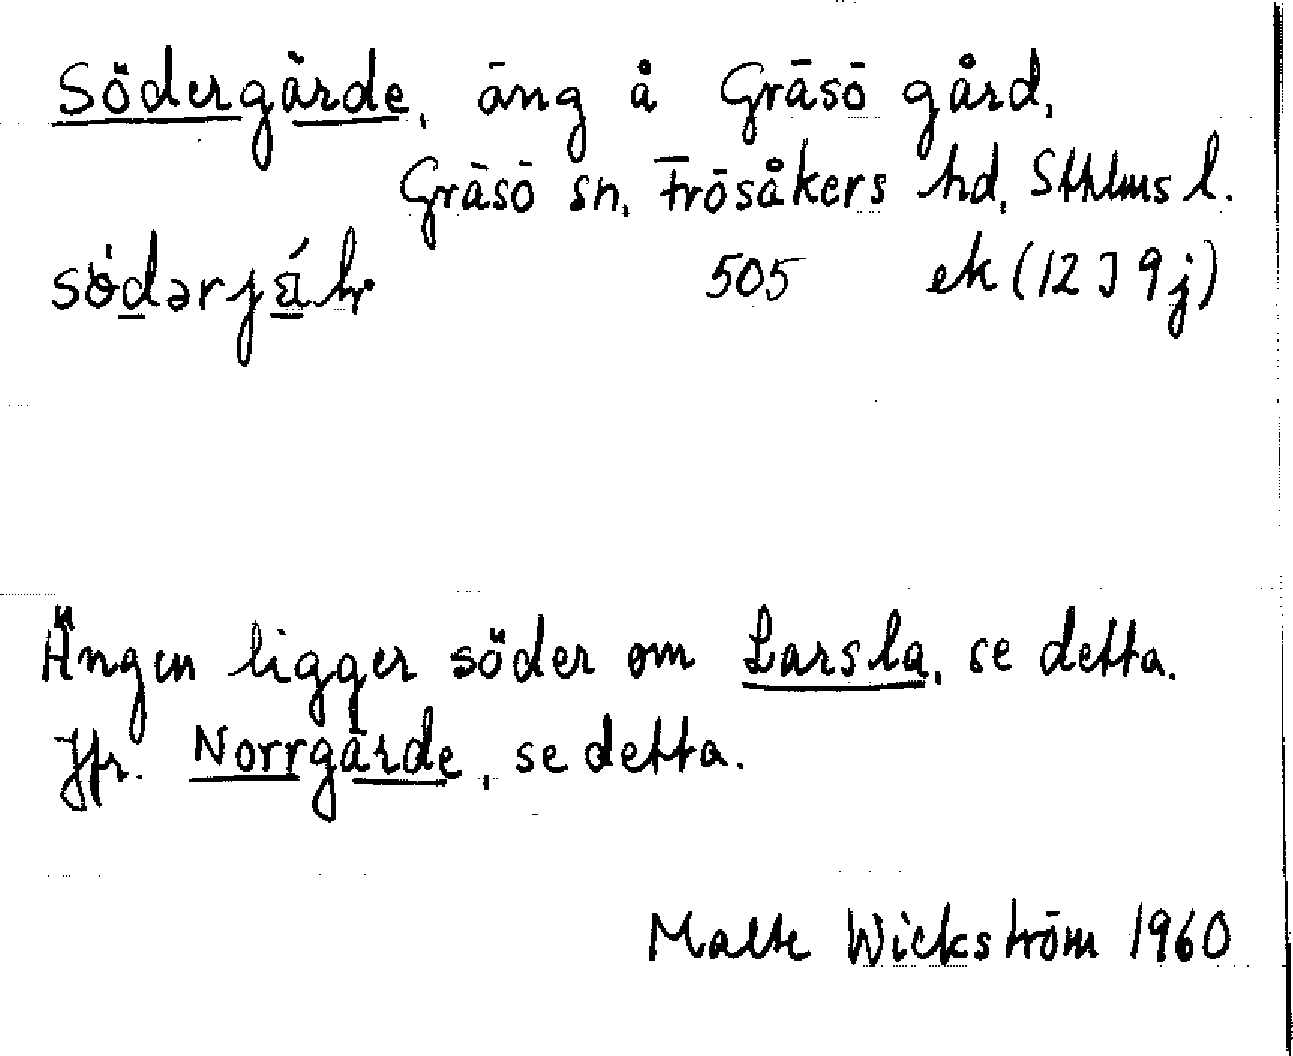 Södergärde, äng å Gräsö gård,
Gräsö sn, Frösåkers hd, Sthlms l.
505 ek (12 J 9 j)
Ängen ligger söder om Larsla, se detta.
Jfr. Norrgärde, se detta.
Malte Wickström 1960